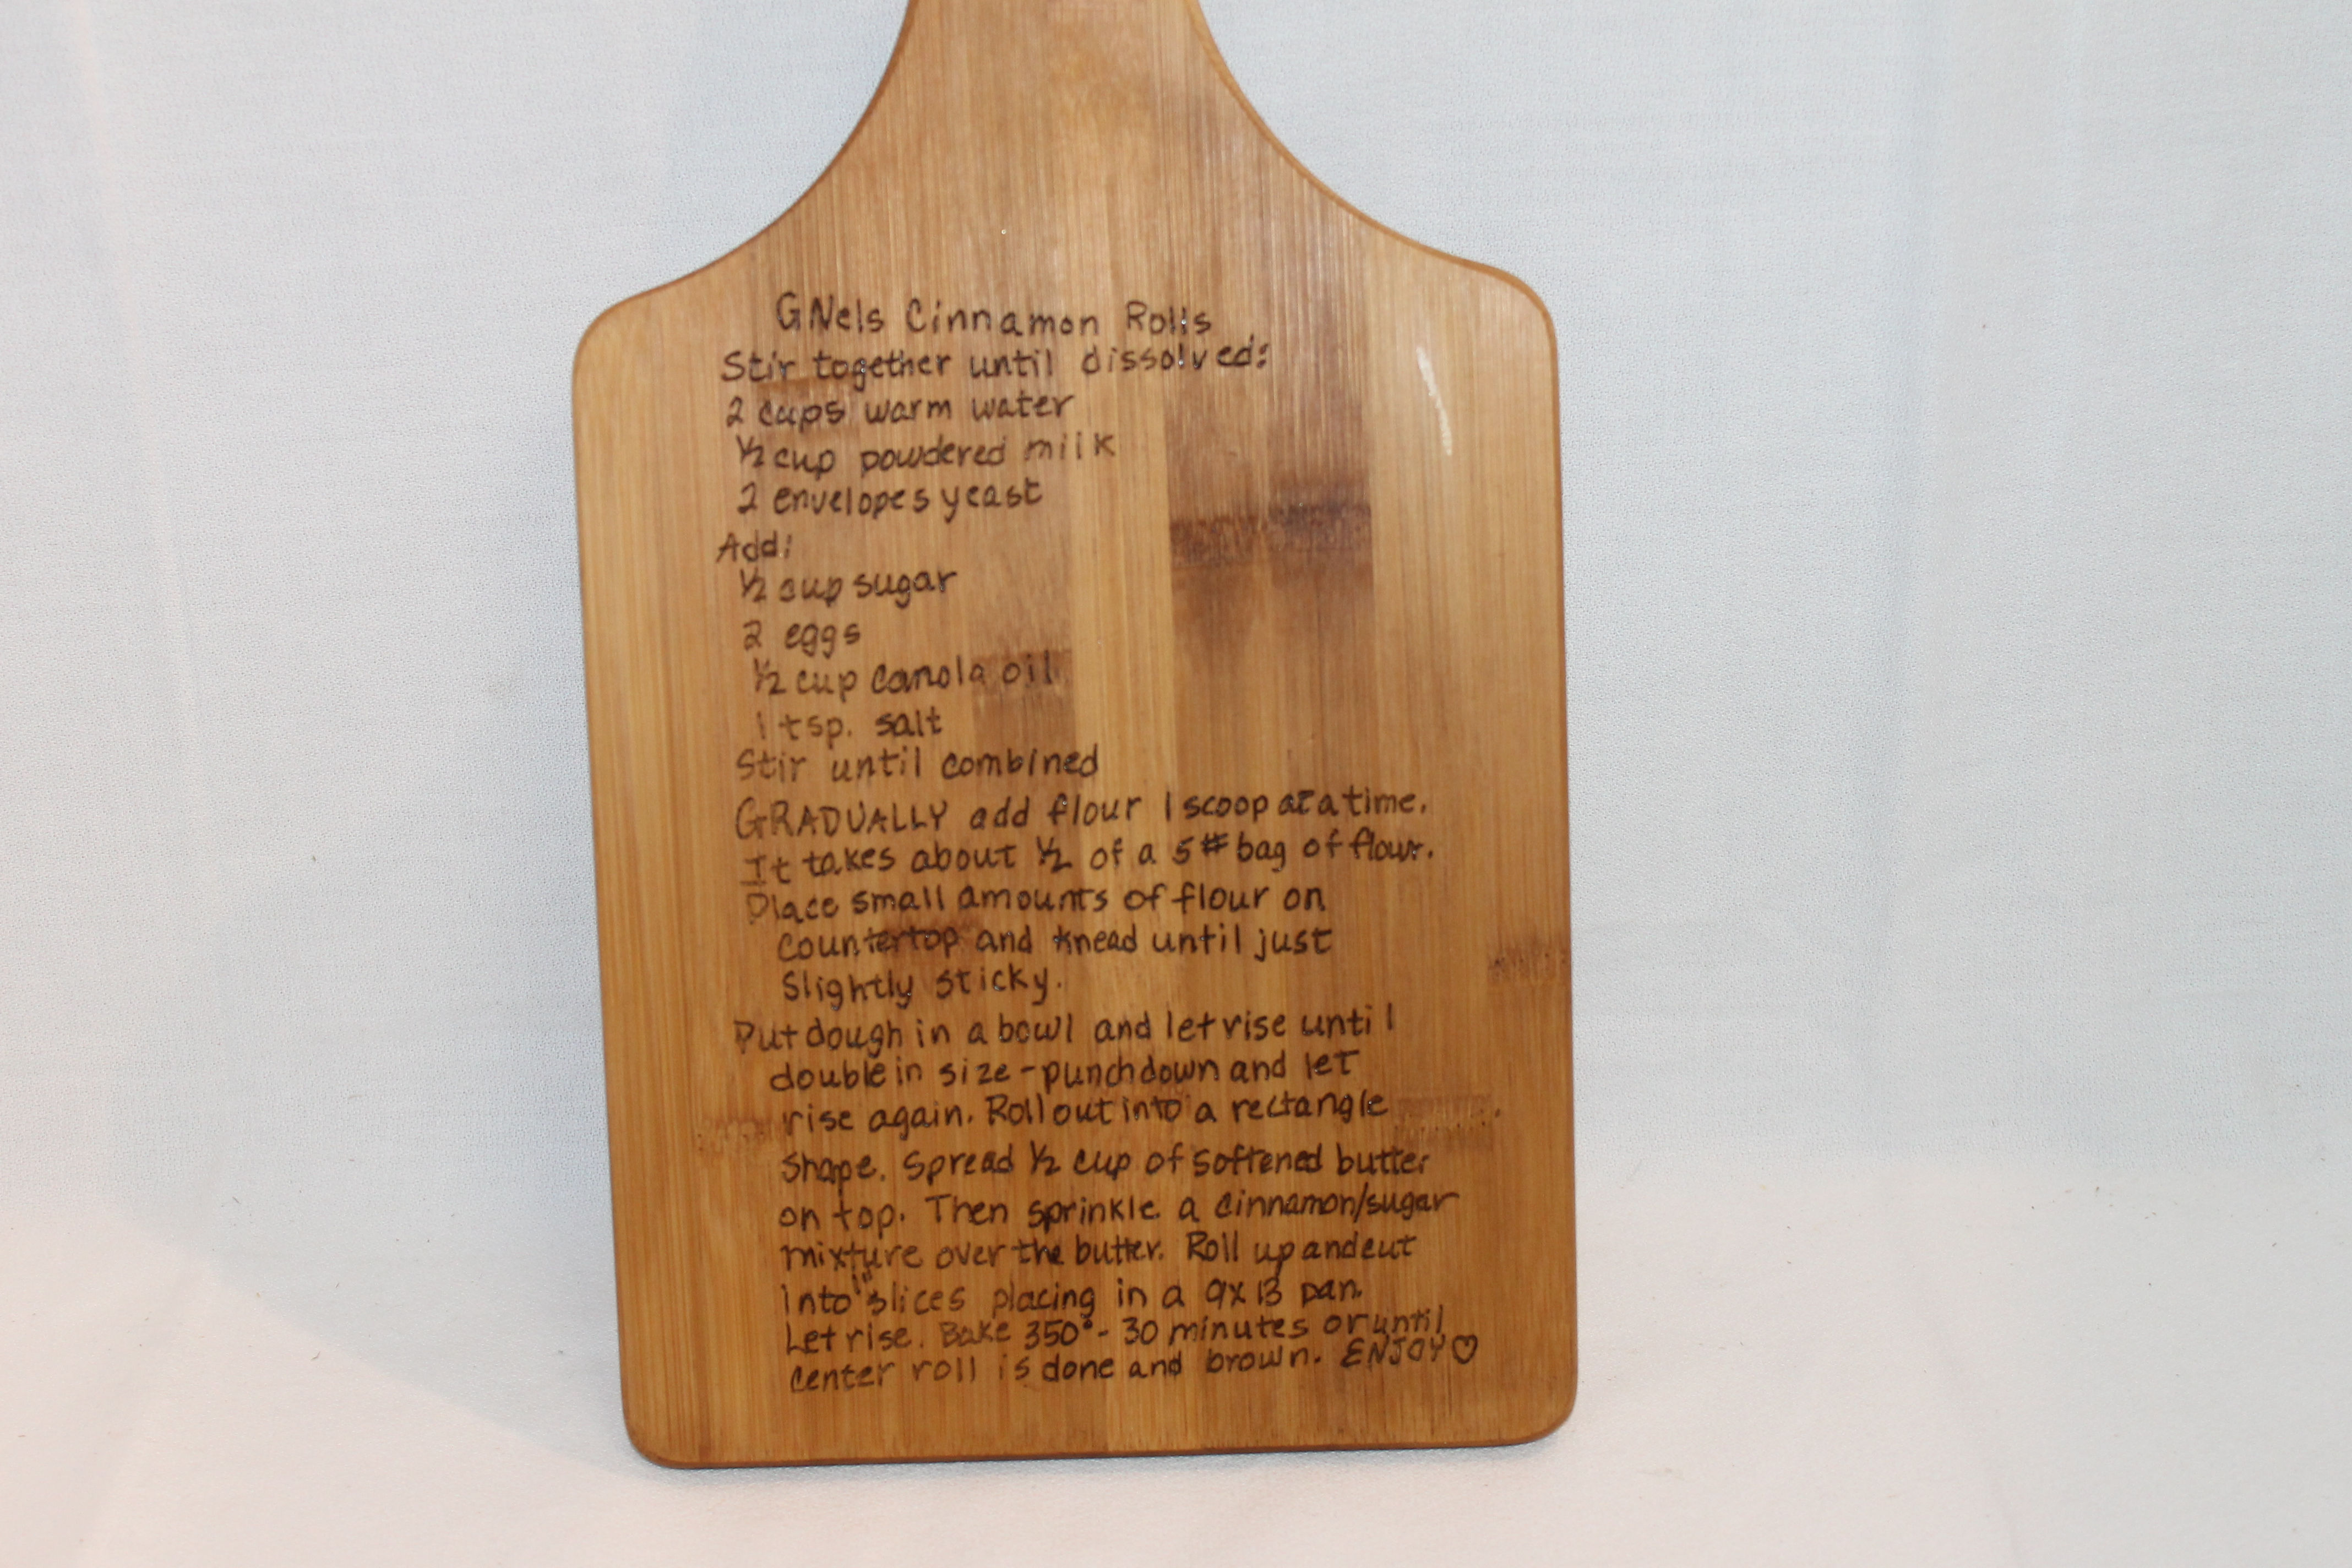 GNels Cinnamon Rolls
Stir together until dissolved:
2 cups warm water
½ cup powdered milk
2 envelopes yeast
Add:
½ cup sugar
2 eggs
½ cup canola oil
1 tsp. salt
Stir until combined
GRADUALLY add flour 1 scoop at a time.
It takes about ½ of a 5# bag of flour.
Place small amounts of flour on
countertop and knead until just
slightly sticky.
Put dough in a bowl and let rise until
double in size - punch down and let
rise again. Roll out into a rectangle
shape. Spread ½ cup of softened butter
on top. Then sprinkle a cinnamon/sugar
mixture over the butter. Roll up and cut
into 1" slices placing in a 9x13 pan.
Let rise. Bake 350° - 30 minutes or until
center roll is done and brown. ENJOY ♡